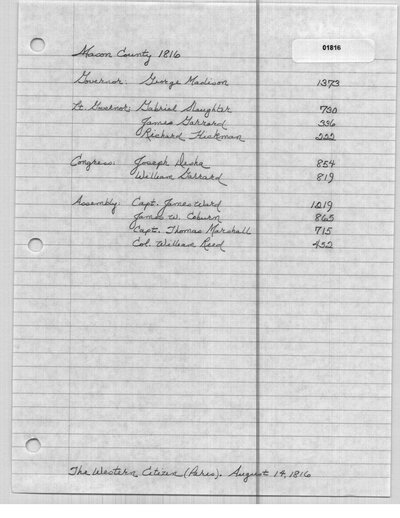 01816
Mason County 1816
Governor: George Madison 1373
Lt. Governor: Gabriel Slaughter 730
James Garrard 336
Richard Hickman 222
Congress: Joseph Desha 854
William Garrard 819
Assembly: Capt. James Ward 1019
James W. Coburn 865
Capt. Thomas Marshall 715
Col. William Reed 452
The Western Citizen (Paris). August 14, 1816